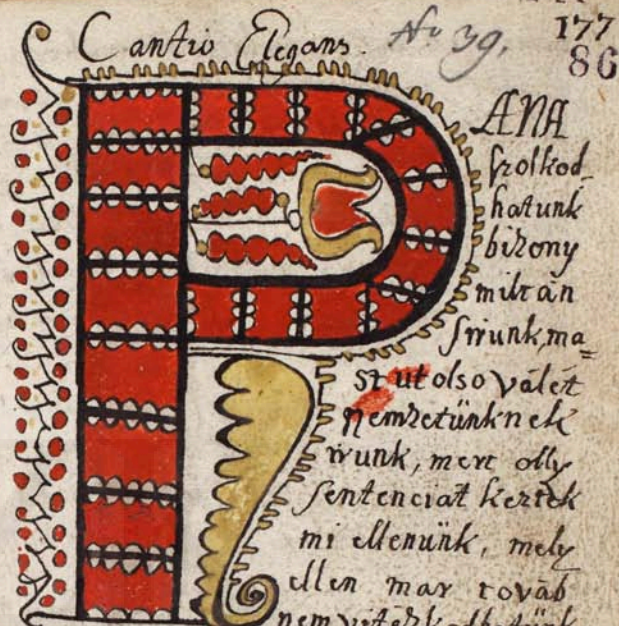 Cantio Elegans. No 39.
177
86
PANA
szolkod-
hatunk
bizony
miltán
sirunk, ma=
st utolso válét
nemzetünknek
irunk, mert olly
sentenciat kertek
mi ellenünk, mely
ellen mar továb
nem vitézkedhetünk